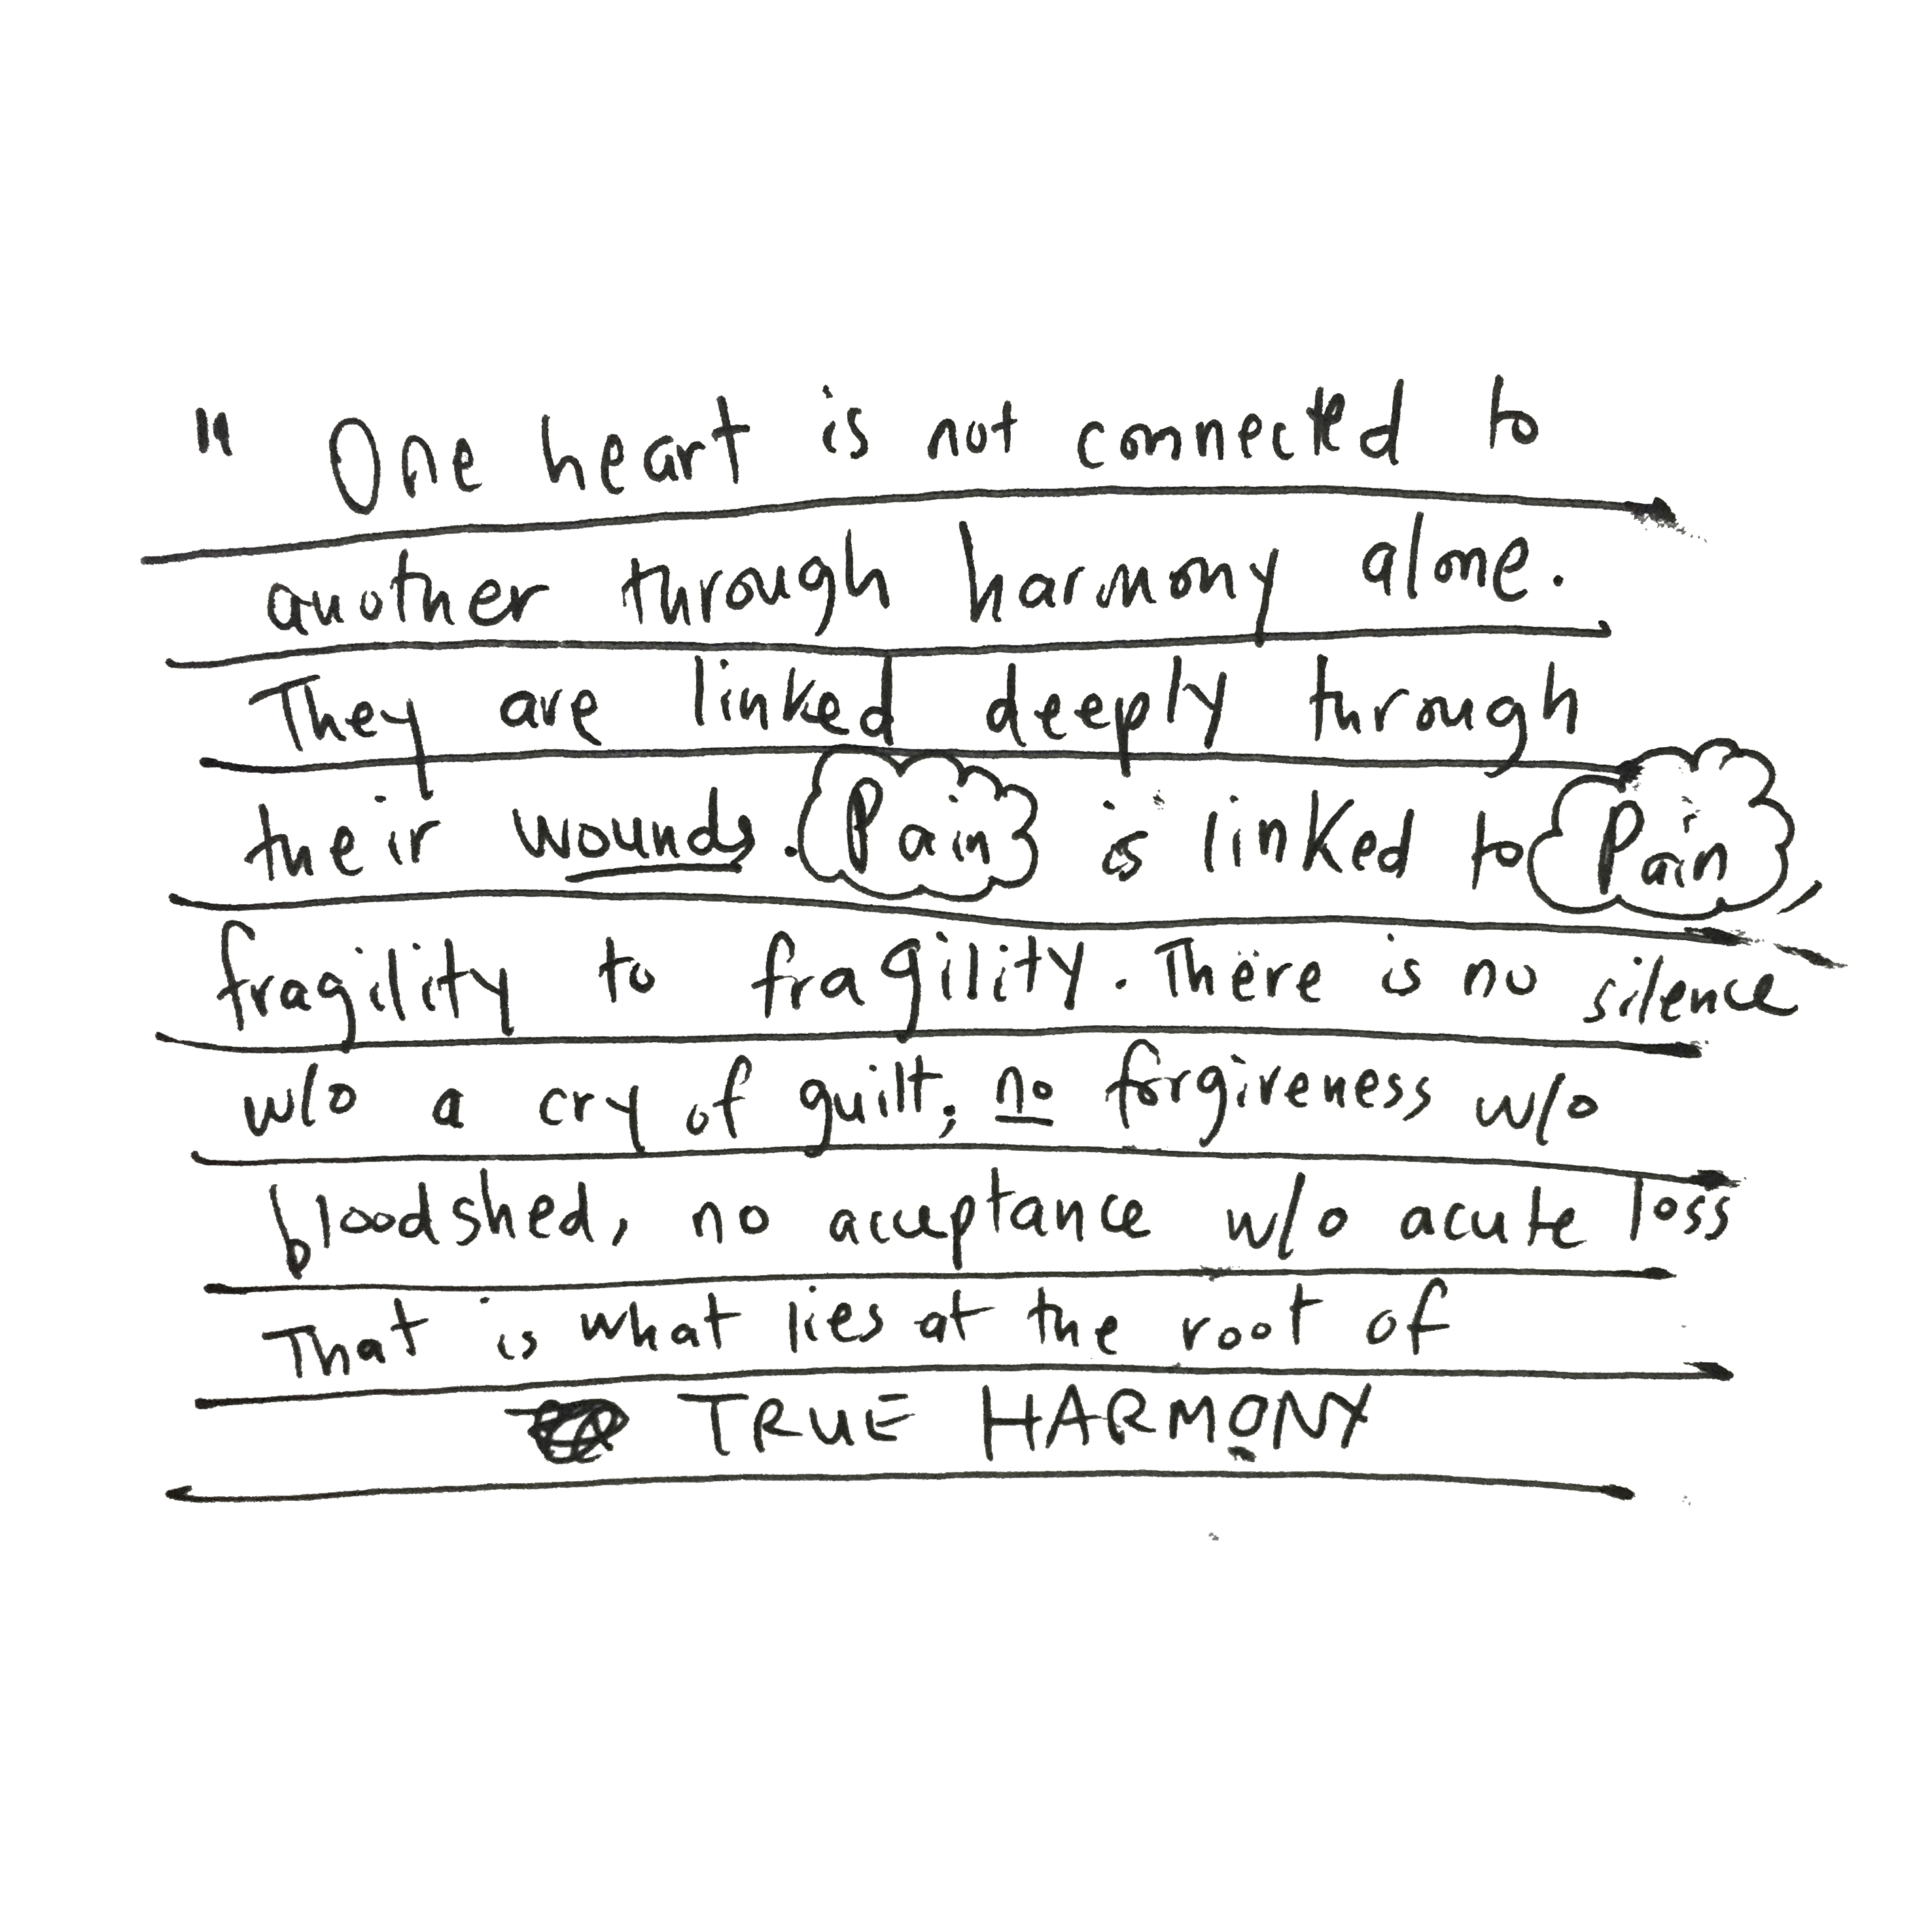 " One heart is not connected to
another through harmony alone.
They are linked deeply through
their wounds. Pain is linked to Pain,
fragility to fragility. There is no silence
w/o a cry of guilt, no forgiveness w/o
bloodshed, no acceptance w/o acute loss
That is what lies at the root of
TRUE HARMONY